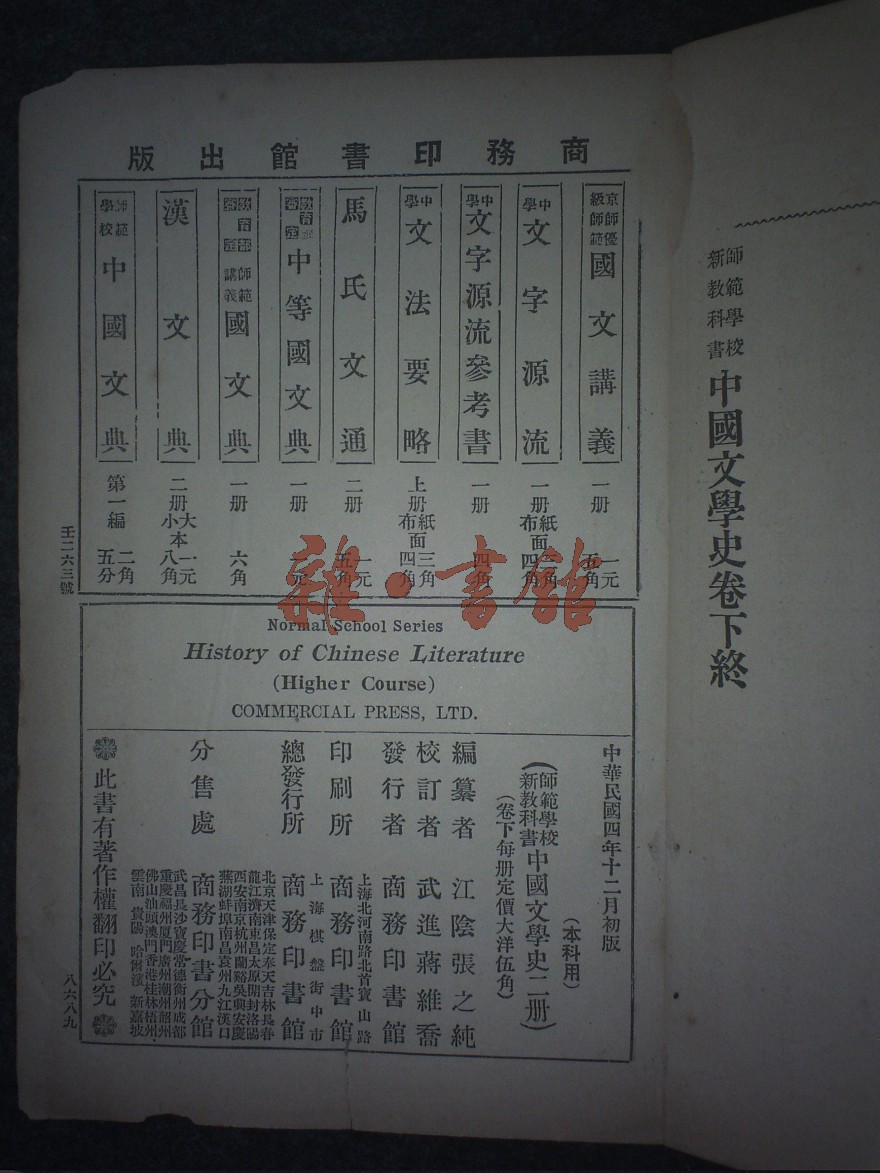 師範學校
新教科書
中國文學史卷下終
商務印書館出版
京師優
級師範
國文講義
一册
一元
五角
中學
文字源流
一册
紙面
布面
三角
四角
中學
文字源流參考書
一册
四角
中學
文法要略
上册
紙面三角
布面四角
馬氏文通
二册
一元
五角
教育部審定
中等國文典
一册
一元
教育部審定
師範講義
國文典
一册
六角
漢文典
二册
大本一元
小本八角
師範
學校
中國文典
第一編
二角
五分
壬二六三號
雜·書館
Normal School Series
History of Chinese Literature
(Higher Course)
COMMERCIAL PRESS, LTD.
中華民國四年十二月初版
(本科用)
(師範學校
新教科書中國文學史二册)
(卷下每册定價大洋伍角)
編纂者 江陰張之純
校訂者 武進蔣維喬
發行者 商務印書館
上海北河南路北首寶山路
印刷所 商務印書館
上海棋盤街中市
總發行所 商務印書館
北京天津保定奉天吉林長春
龍江濟南東昌太原開封洛陽
西安南京杭州蘭谿吳興安慶
蕪湖蚌埠南昌袁州九江漢口
分售處 商務印書分館
武昌長沙寶慶常德衡州成都
重慶福州厦門廣州潮州韶州
佛山汕頭澳門香港桂林梧州
雲南 貴陽 哈爾濱 新嘉坡
此書有著作權翻印必究
八六八九